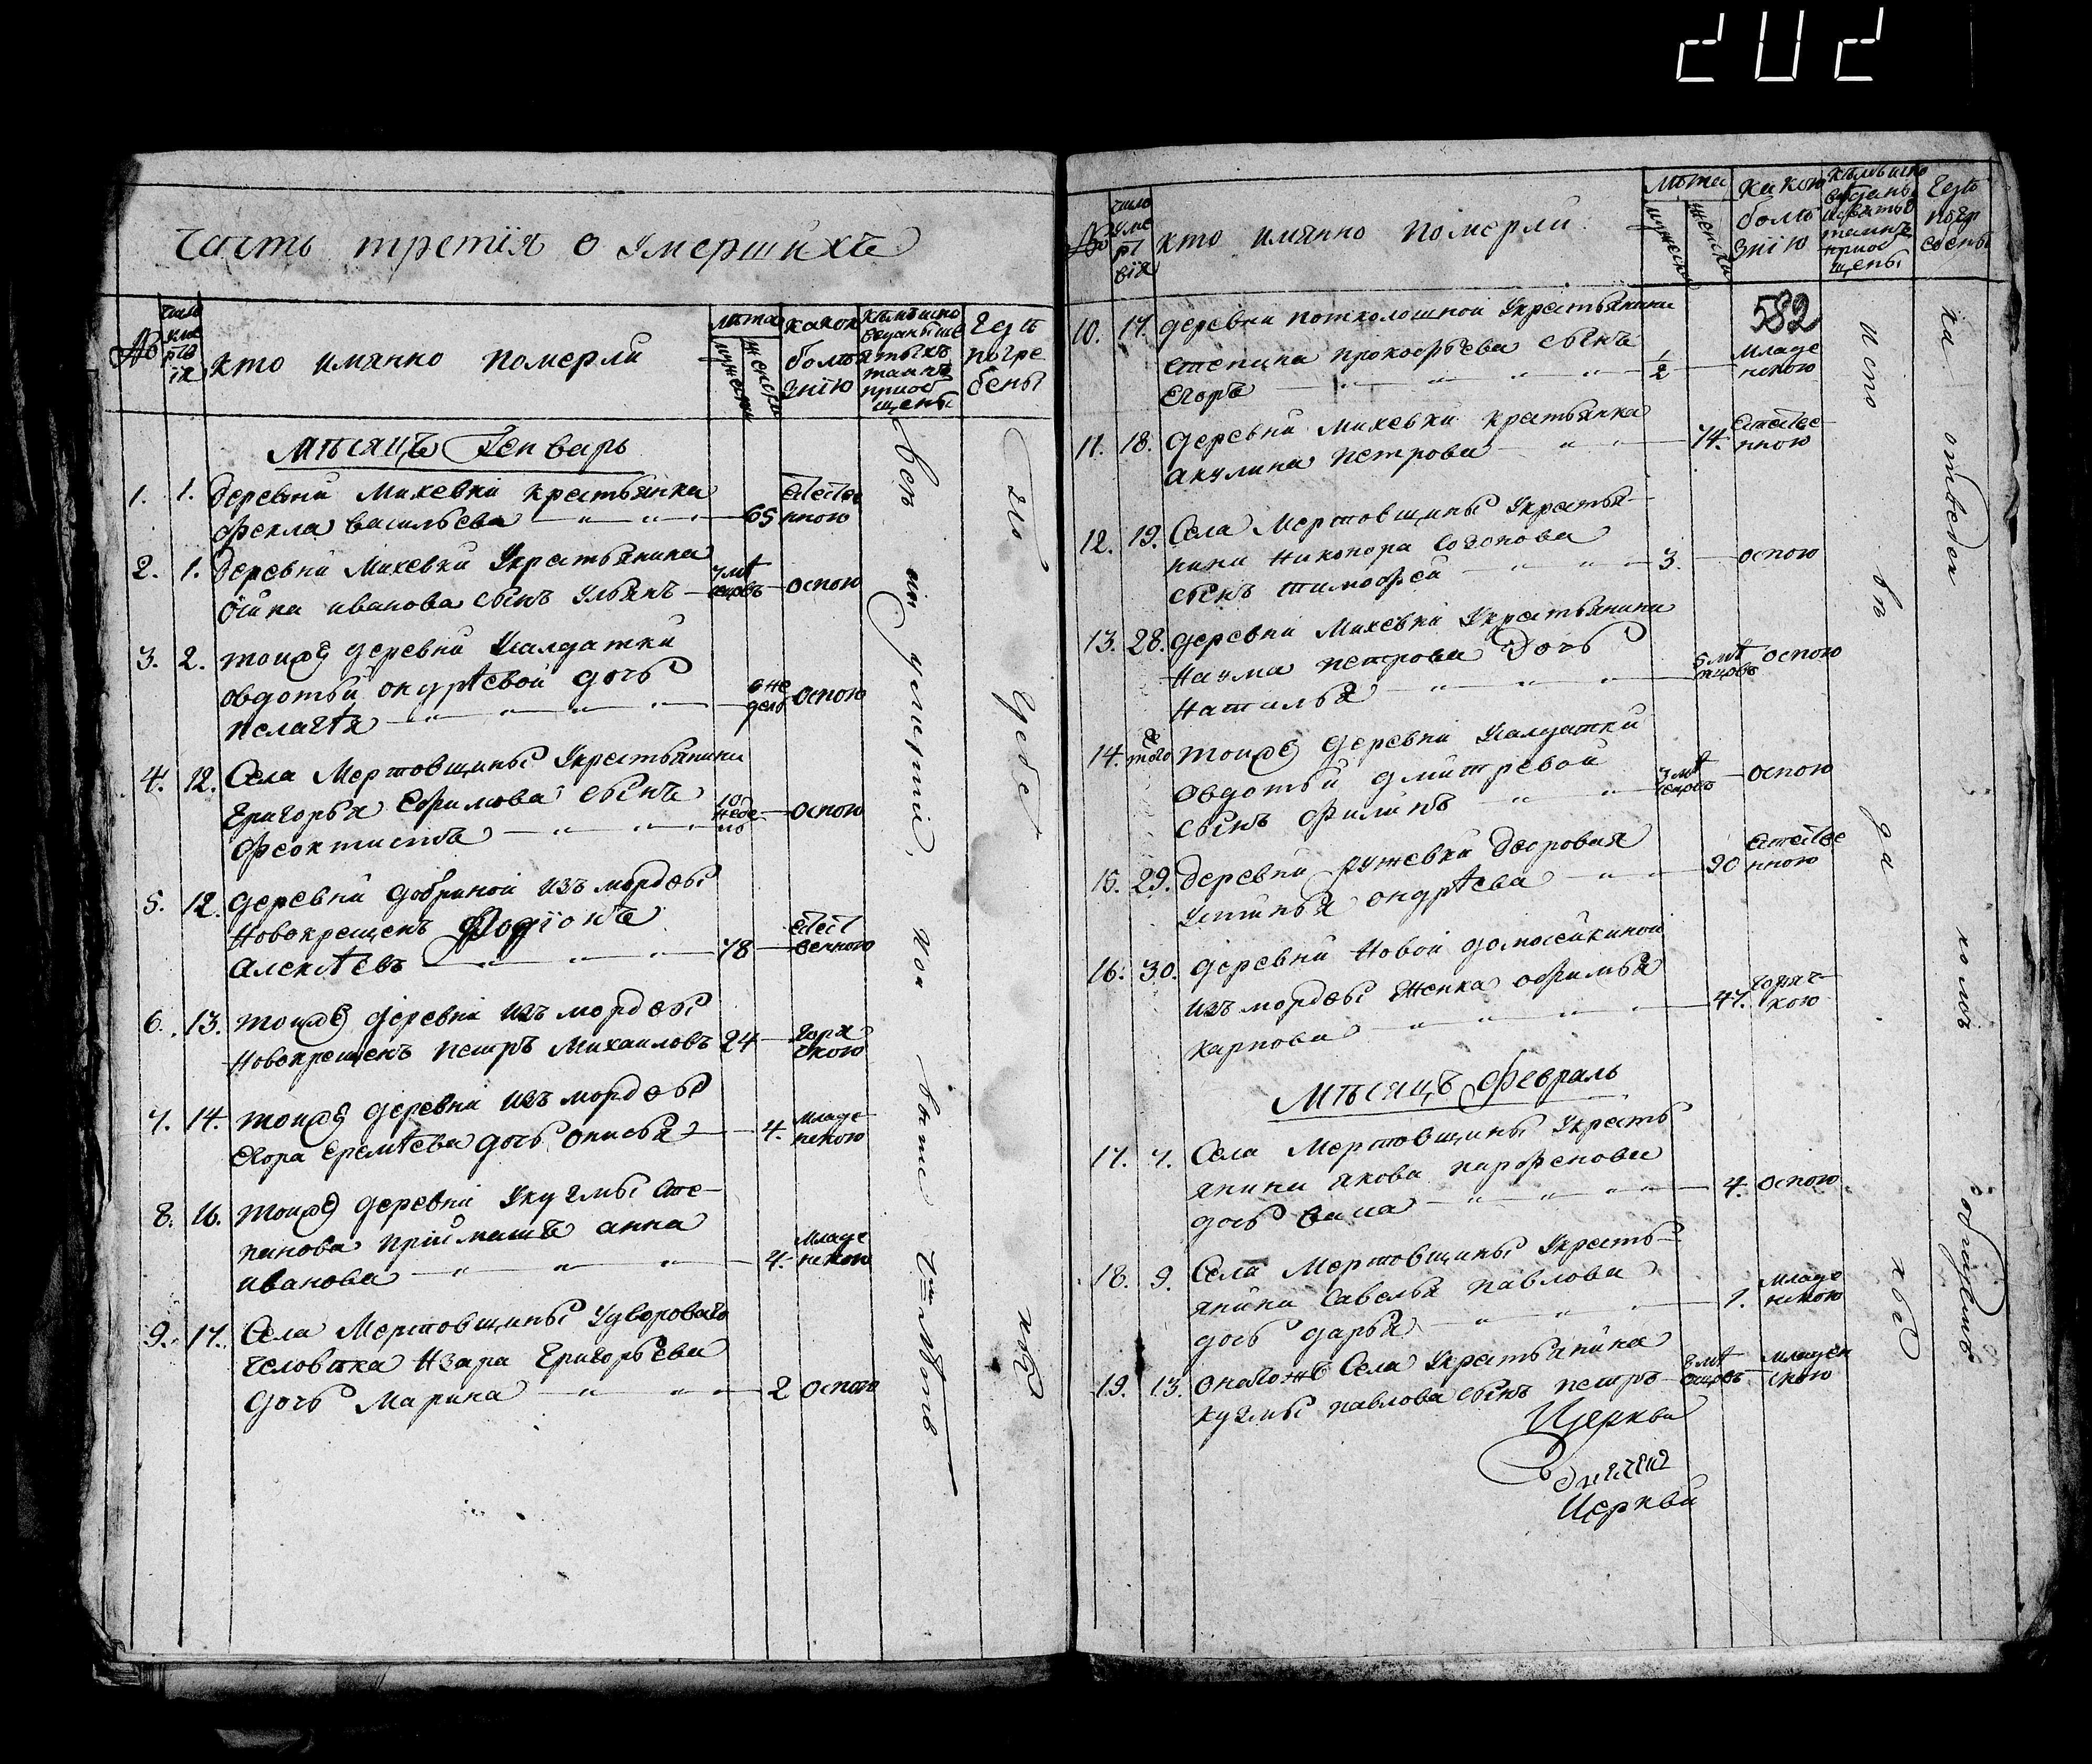 202
Часть третія о умершихъ
№
число
уме
ртв
ія
кто имянно померли
лѣта
мужеска
женска
какою
болѣ
знію
кѣмъ испо
веданы и св
ятыхъ
таинъ
приоб
щены
Где
погре
бены
Мѣсяцъ Генварь
1. 1. Деревни Михевки крестьянка
Фекла васильева 65 естестве
нною
2. 1. Деревни Михевки Укрестьянина
иванова сынъ Ульянъ оспою
3. 2. тоиже деревни Усалдатки
овдотьи ондрѣевой дочь
пелагѣя 6 не
дель оспою
4. 12. Села Мертовщины Укрестьянина
Григорья Ефимова сынъ
Феоктистъ 10
неде
ль оспою
5. 12. деревни добриной изъ мордвы
Новокрещенъ Родіонъ
Алексѣевъ 78 естест
венною
6. 13. тоиже деревни изъ мордвы
Новокрещенъ петръ Михаиловъ 24 Горя
чкою
7. 14. тоиже деревни изъ мордвы
егора еремѣева дочь онисья 4. Младе
нскою
8. 16. тоиже деревни Укузмы Сте-
панова пріимышъ анна
иванова 4. Младе
нскою
9. 17. Села Мертовщины Удвороваго
человѣка Назара Григорьева
дочь Марина 2 оспою
всѣ
№
число
уме
рт
вія
кто имянно померли
лѣта
мужеска
женска
какою
болѣ
знію
кѣмъ испо
веданы
и святы
таинъ
приоб
щены
Где
погр
ебены
582
10. 17. деревни потколошной Укрестьянина
степана прокофьева сынъ
Егоръ 1/2 Младе
нскою
11. 18. деревни Михевки крестьянка
акулина петрова 74. Естестве
нною
12. 19. Села Мертовщины Укрестья-
нина Никонора Созонова
сынъ тимофей 3. оспою
13. 28. деревни Михевки Укрестьянина
Наума петрова Дочь
Наталья 5 мѣ
сяцовъ оспою
14. того тоиже деревни Усалдатки
Овдотьи дмитревой
сынъ Филипъ 3 мѣ
сяцовъ оспою
15. 29. деревни рутевки дворовая
устинья ондрѣева 20 естестве
нною
16. 30. деревни Новой домосейкиной
изъ мордвы женка офимья
карпова 47. Горяч-
кою
Мѣсяцъ Февраль
17. 7. Села Мертовщины Укресть
янина якова парфенова
дочь васа 4. оспою
18. 9. Села Мертовщины Укресть-
янина савелья павлова
дочь дарья 1. Младе
нскою
19. 13. онагожъ Села Укрестьянина
кузмы павлова сынъ петръ 8 мѣ
сяцовъ Младен
скою
Церкви
Церкви